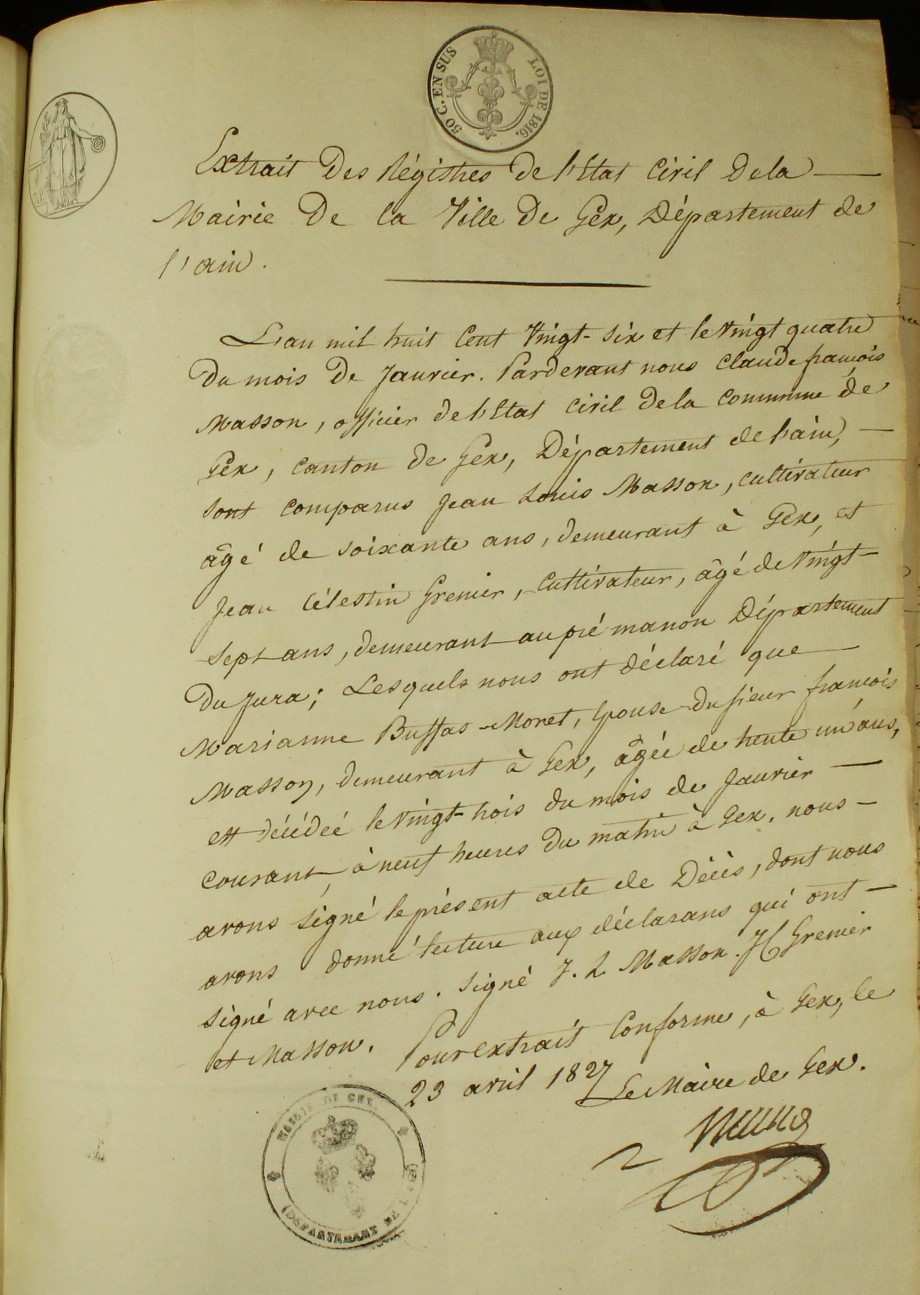 50 C. EN SUS
LOI DE 1816.
Extrait Des Régistres de l'Etat civil De la
Mairie De la Ville De Gex, Département de
l'ain.
L'an mil huit Cent Vingt-six et le Vingt quatre
Du mois de Janvier. Pardevant nous Claude françois
Masson, officier de l'Etat civil De la commune de
Gex, canton de Gex, Département de l'ain,
sont comparus Jean Louis Masson, cultivateur
âgé de soixante ans, demeurant à Gex, et
Jean Célestin Grenier, cultivateur, âgé de Vingt-
sept ans, demeurant au pré manon Département
Du Jura; Lesquels nous ont déclaré que
Marianne Buffas-Monet, épouse du sieur françois
Masson, demeurant à Gex, âgée de trente un ans,
est décédeé le Vingt-trois du mois de Janvier
courant, à neuf heures Du matin à Gex. nous
avons signé le présent acte de Décès, dont nous
avons donné lecture aux déclarans qui ont
signé avec nous. signé J. L Masson. JC Grenier
et Masson. Pour extrait Conforme, à Gex, le
23 avril 1827
Le Maire de Gex.
MAIRIE DE GEX
(DÉPARTEMENT DE L'AIN)